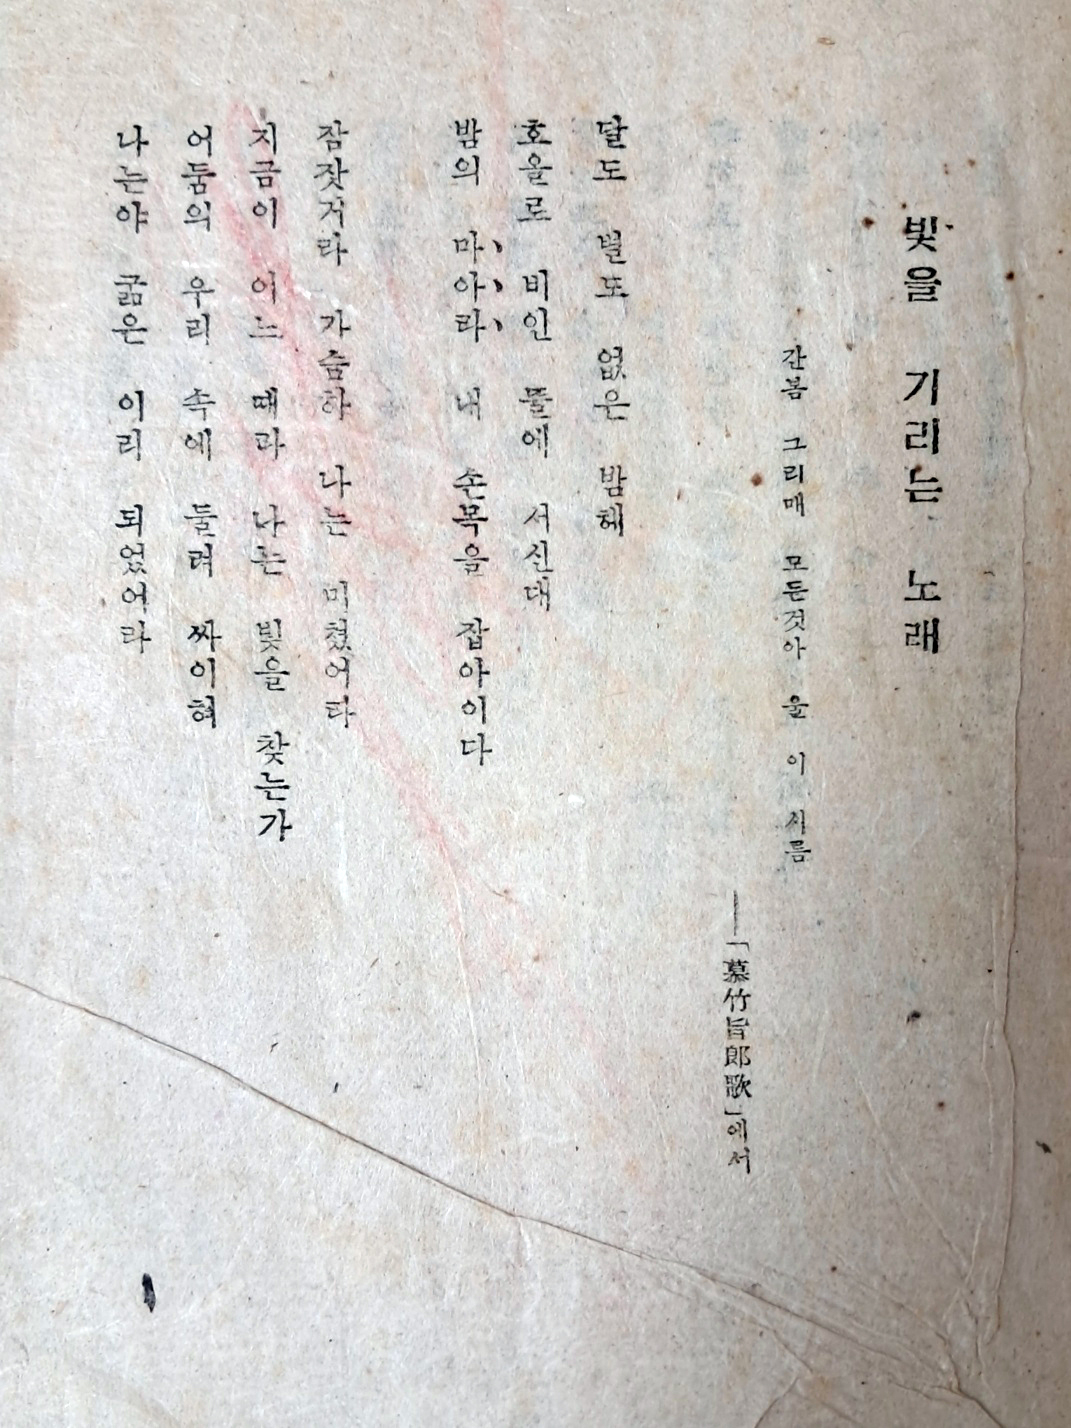 빛을 기리는 노래
간봄 그리매 모든것아 울 이 시름
──「慕竹旨郎歌」에서
달도 별도 없은 밤혜
호올로 비인 뜰에 서신대
밤의 마아라 내 손목을 잡아이다
잠잣거라 가슴하 나는 미쳤어라
지금이 어느 때라 나는 빛을 찾는가
어둠의 우리 속에 둘려 싸이혀
나는야 굶은 이리 되었어라